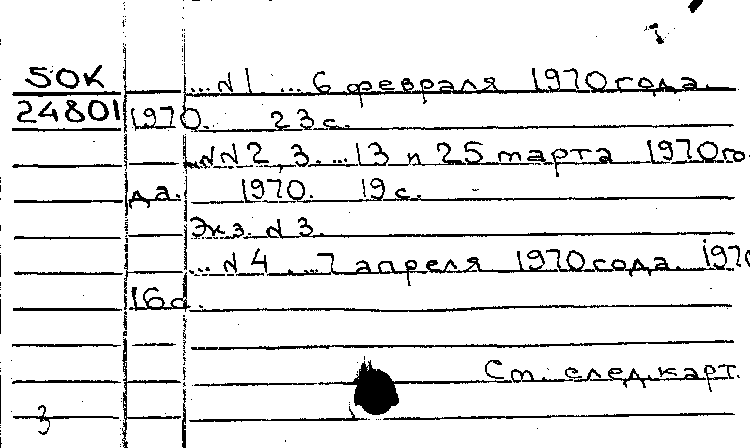 50К ...N1. ...6 февраля 1970 года.
24801 1970. 23с.
...NN2, 3. ...13 и 25 марта 1970 го-
да. 1970. 19с.
Экз. N 3.
...N4. ...7 апреля 1970 года. 1970
16с.
Ст. след.карт.
3